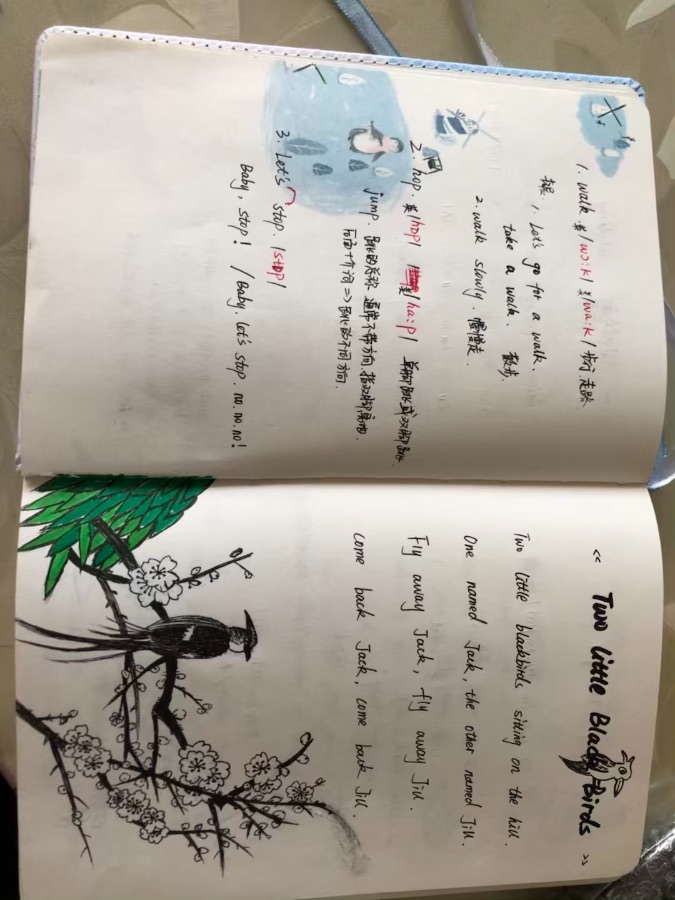 1. walk. 英/wɔ:k/ 美/wa:k/ 步行.走路
1. Let's go for a walk.
take a walk. 散步.
2. walk slowly. 慢慢走.
2. hop. 英/hɒp/ 美/ha:p/ 单脚跳或双脚跳.
jump. 跳的总称 通常不带方向.指双脚离地.
后面+介词=>跳的不同方向.
3. Let's stop. /stɒp/
Baby, stop! / Baby. let's stop. no. no. no!
《Two little Black Birds》
Two little blackbirds sitting on the hill.
One named Jack, the other named Jill.
Fly away Jack, fly away Jill.
come back Jack, come back Jill.